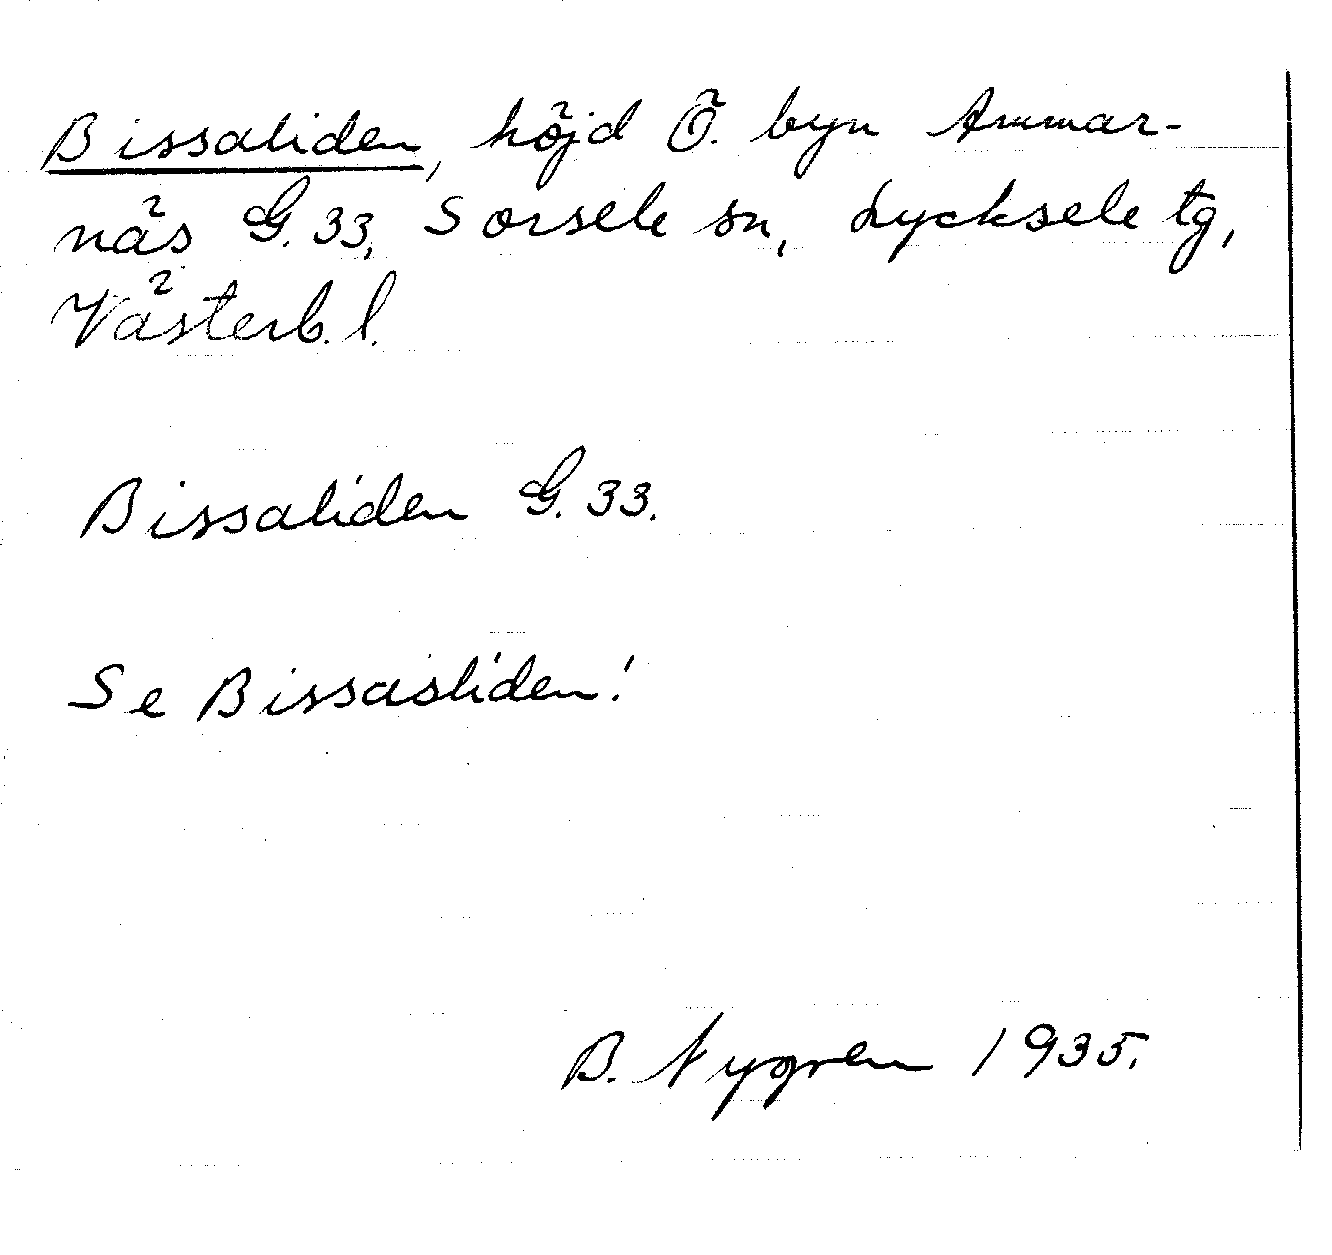 Bissaliden, höjd Ö. byn Ammar-
näs G. 33, Sorsele sn, Lycksele tg,
Västerb. l.
Bissaliden G. 33.
Se Bissasliden!
B. Nygren 1935.